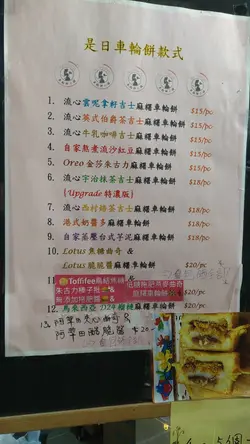 是日車輪餅款式
1. 流心雲呢拿軒吉士麻糬車輪餅 $15/pc
2. 流心英式伯爵茶吉士麻糬車輪餅 $15/pc
3. 流心牛乳咖啡吉士麻糬車輪餅 $15/pc
4. 自家熬煮流沙紅豆麻糬車輪餅 $15/pc
5. Oreo金莎朱古力麻糬車輪餅 $15/pc
6. 流心宇治抹茶吉士麻糬車輪餅 $18/pc
(Upgrade特濃版)
7. 流心西村焙茶吉士麻糬車輪餅 $18/pc
8. 港式奶醬多麻糬車輪餅 $18/pc
9. 自家蒸壓台式芋泥麻糬車輪餅 $18/pc
10. Lotus焦糖曲奇&
Lotus脆脆醬麻糬車輪餅
11
Toffifee鳥結焦糖
朱古力榛子批&
無添加
低糖
麻糬車輪餅
12. 馬來西亞D24榴槤麻糬車輪餅
13. 阿華田夾心曲奇&
阿華田脆脆醬 $20